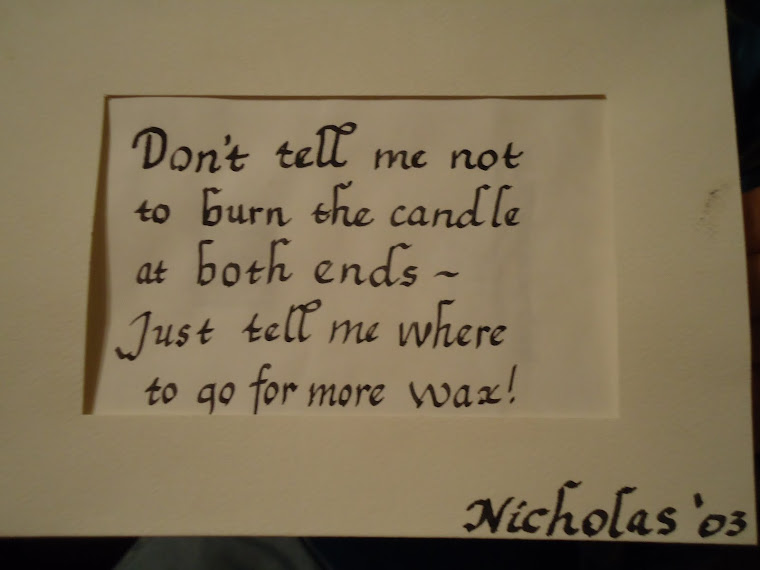 Don't tell me not
to burn the candle
at both ends ~
Just tell me where
to go for more wax!
Nicholas '03